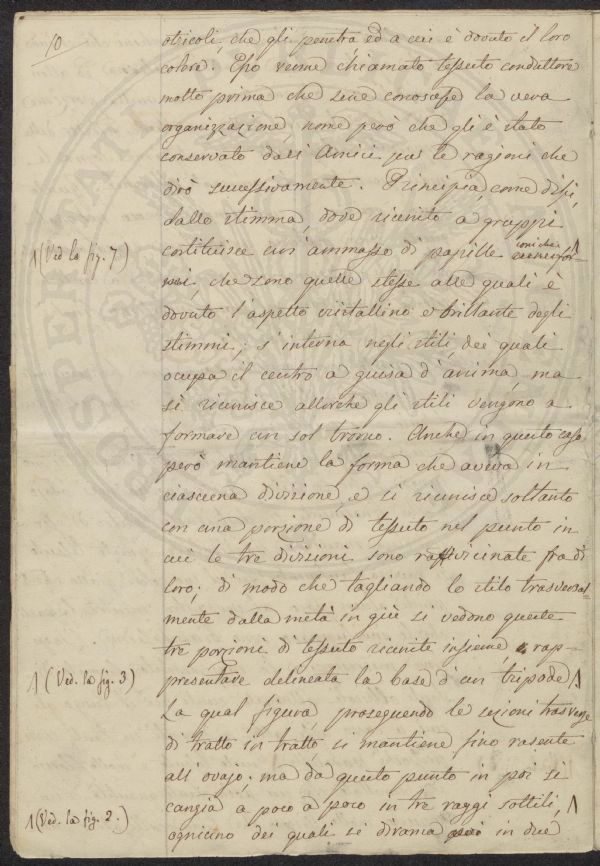 10
otricoli, che gli penetra, ed a cui è dovuto il loro
colore. Esso venne chiamato tessuto conduttore
molto prima che sene conoscesse la vera
organizzazione, nome però che gli è stato
conservato dall'Amici per le ragioni che
dirò successivamente. Principia, come dissi,
dallo stimma, dove riunito a gruppi
costituisce un'ammasso di papille coniche
/\ (Ved la fig. 7)
che sono quelle stesse alle quali è
dovuto l'aspetto cristallino e brillante degli
stimmi; s'interna negli stili, dei quali
ocupa il centro a guisa d'anima, ma
si riunisce allorchè gli stili vengono a
formare un sol tronco. Anche in questo caso
però mantiene la forma che aveva in
ciascuna divisione, e si riunisce soltanto
con una porzione di tessuto nel punto in
cui le tre divisioni sono ravvicinate fra di
loro; di modo che tagliando lo stilo trasversal-
mente dalla metà in giù si vedono queste
tre porzioni di tessuto riunite insieme, e rap-
presentare delineata la base d'un tripode /\
/\ (Ved. la fig. 3)
La qual figura, proseguendo le sezioni trasverse
di tratto in tratto, si mantiene fino rasente
all'ovajo; ma da questo punto in poi si
cangia a poco a poco in tre raggi sottili, /\
/\ (Ved. la fig. 2.)
ognuno dei quali si dirama poi in due